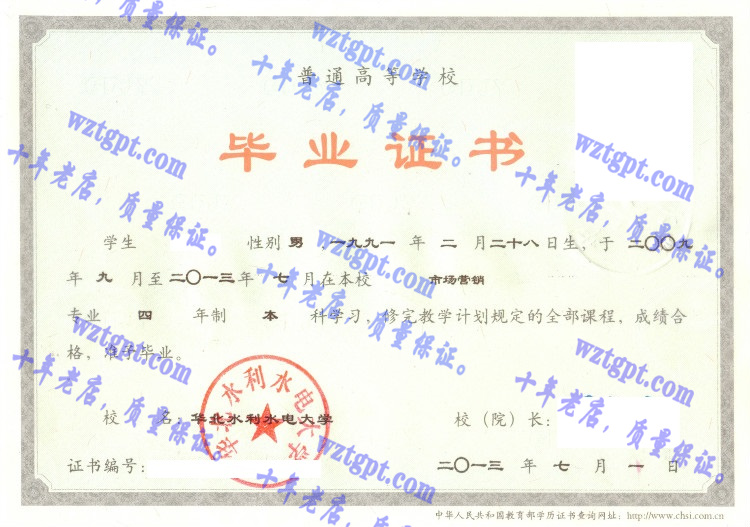 普通高等学校
毕业证书
学生 性别 男 ,一九九一 年 二 月二十八日生，于 二〇〇九
年 九 月至二〇一三年 七 月在本校 市场营销
专业 四 年制 本 科学习，修完教学计划规定的全部课程，成绩合
格，准予毕业。
校 名：华北水利水电大学 校（院）长：
证书编号： 二〇一三 年 七 月 一 日
中华人民共和国教育部学历证书查询网址：http://www.chsi.com.cn
华北水利水电大学
wztgpt.com
十年老店，质量保证。
wztgpt.com
十年老店，质量保证。
wztgpt.com
十年老店，质量保证。
wztgpt.com
十年老店，质量保证。
wztgpt.com
十年老店，质量保证。
wztgpt.com
十年老店，质量保证。
wztgpt.com